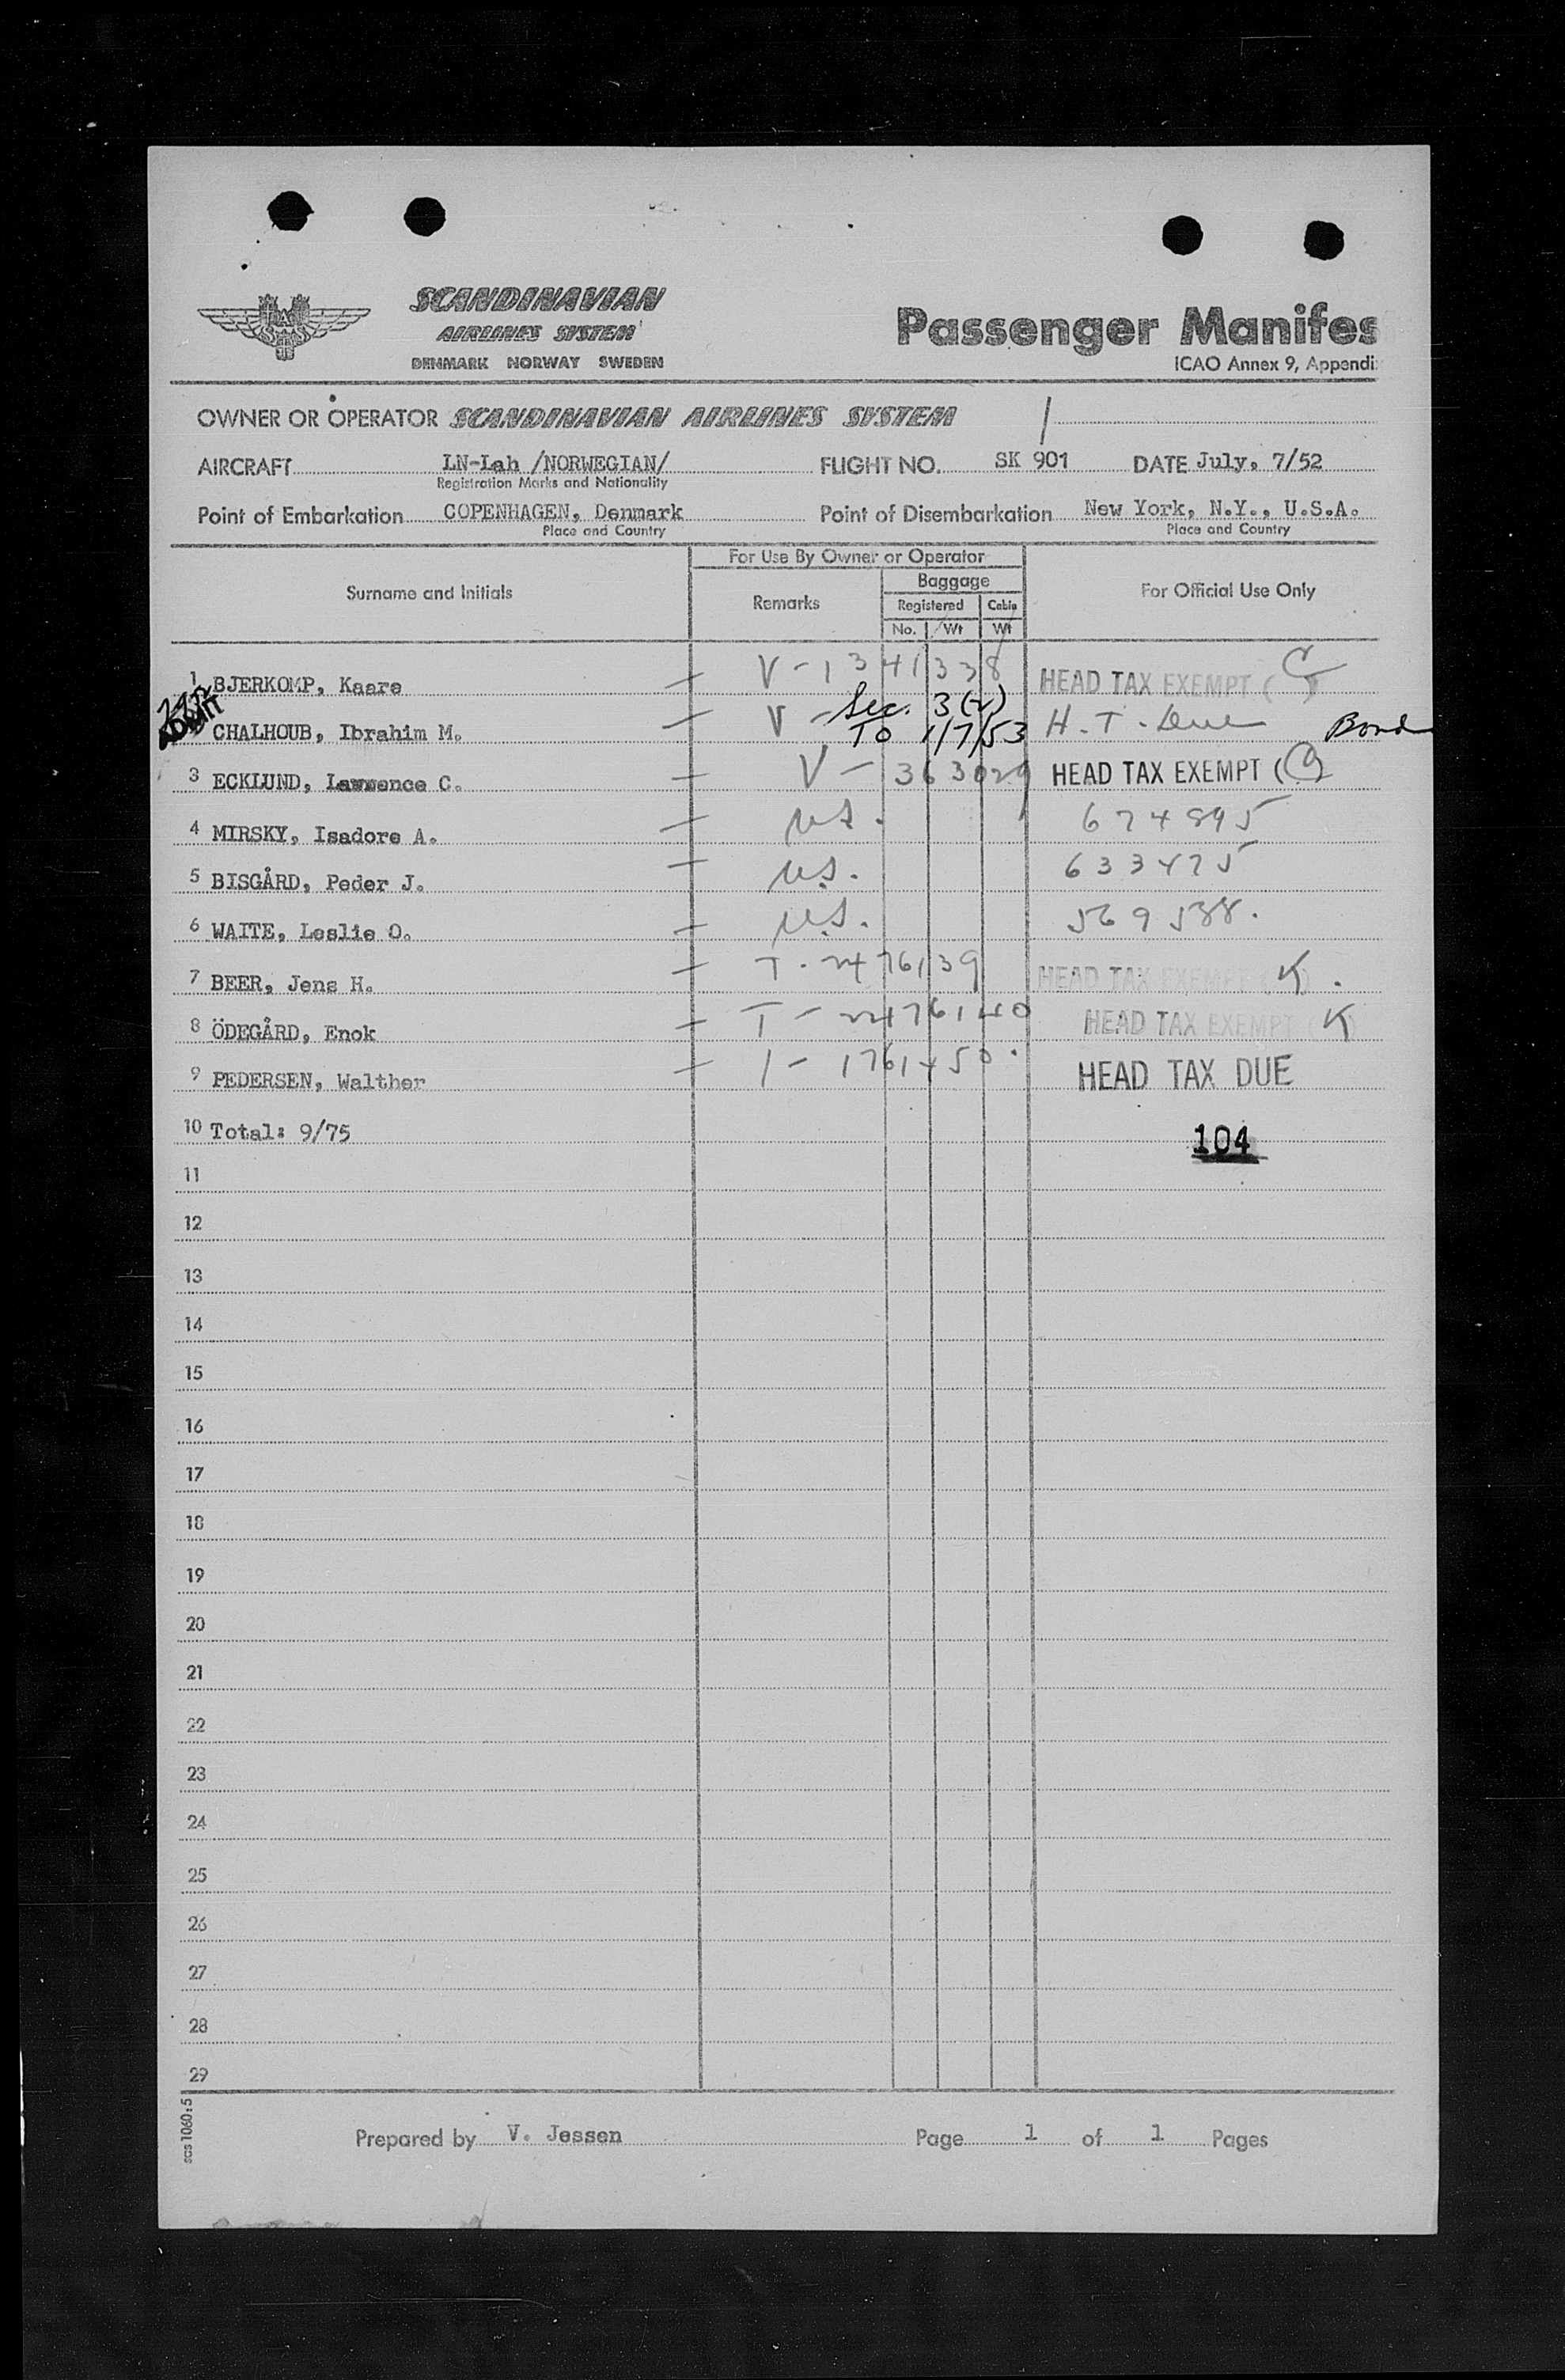 SCANDINAVIAN
AIRLINES SYSTEM
DENMARK NORWAY SWEDEN
Passenger Manifes
ICAO Annex 9, Appendi
OWNER OR OPERATOR SCANDINAVIAN AIRLINES SYSTEM
AIRCRAFT LN-Lah /NORWEGIAN/ FLIGHT NO. SK 901 DATE July, 7/52
Registration Marks and Nationality
Point of Embarkation COPENHAGEN, Denmark Point of Disembarkation New York, N.Y., U.S.A.
Place and Country Place and Country
Surname and Initials For Use By Owner or Operator For Official Use Only
Remarks Baggage
Registered Cabin
No. Wt Wt
1 BJERKOMP, Kaare — V-1341338 HEAD TAX EXEMPT ( C )
ADMIT CHALHOUB, Ibrahim M. — V - Sec. 3(2) TO 1/7/53 H.T. Due Bond
3 ECKLUND, Lawrence C. — V - 363029 HEAD TAX EXEMPT (C)
4 MIRSKY, Isadore A. — U.S. 674895
5 BISGÅRD, Peder J. — U.S. 633475
6 WAITE, Leslie O. — U.S. 569588.
7 BEER, Jens H. — T. 2476139 HEAD TAX EXEMPT ( K ).
8 ÖDEGÅRD, Enok — T - 2476140 HEAD TAX EXEMPT ( K )
9 PEDERSEN, Walther — 1 - 1761450. HEAD TAX DUE
10 Total: 9/75 104
11
12
13
14
15
16
17
18
19
20
21
22
23
24
25
26
27
28
29
sas 1060:5
Prepared by V. Jessen Page 1 of 1 Pages